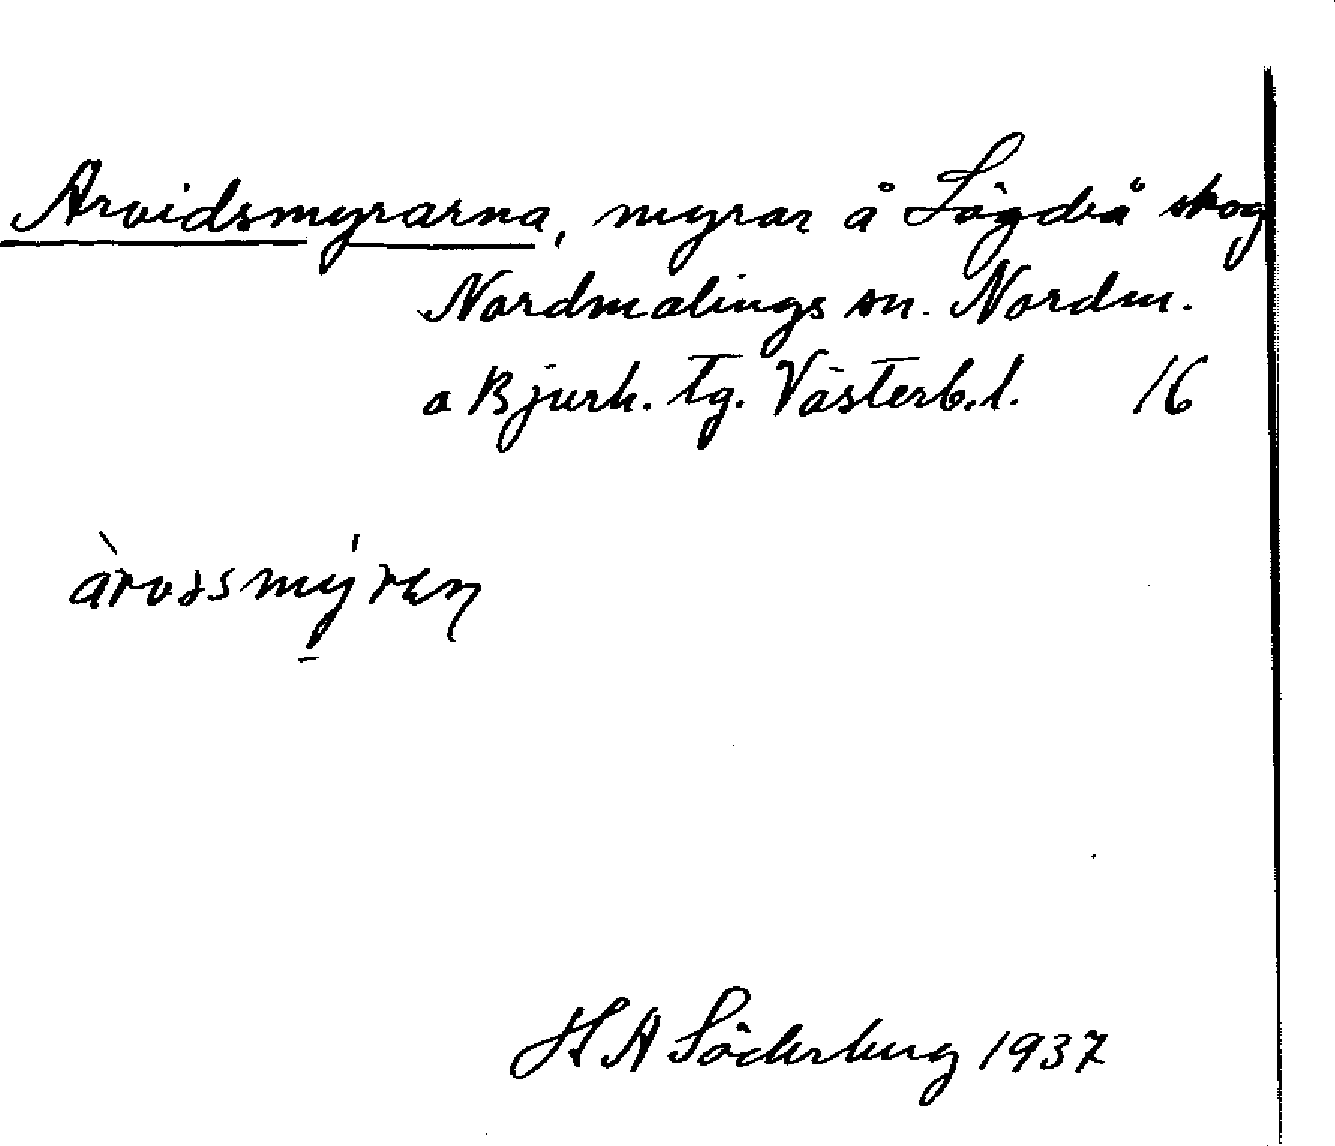 Arvidsmyrarna, myrar å Lögdeå skog
Nordmalings sn. Nordm.
o Bjurh. tg. Västerb.l. 16
àrvəsmýren
H A Söderberg 1937